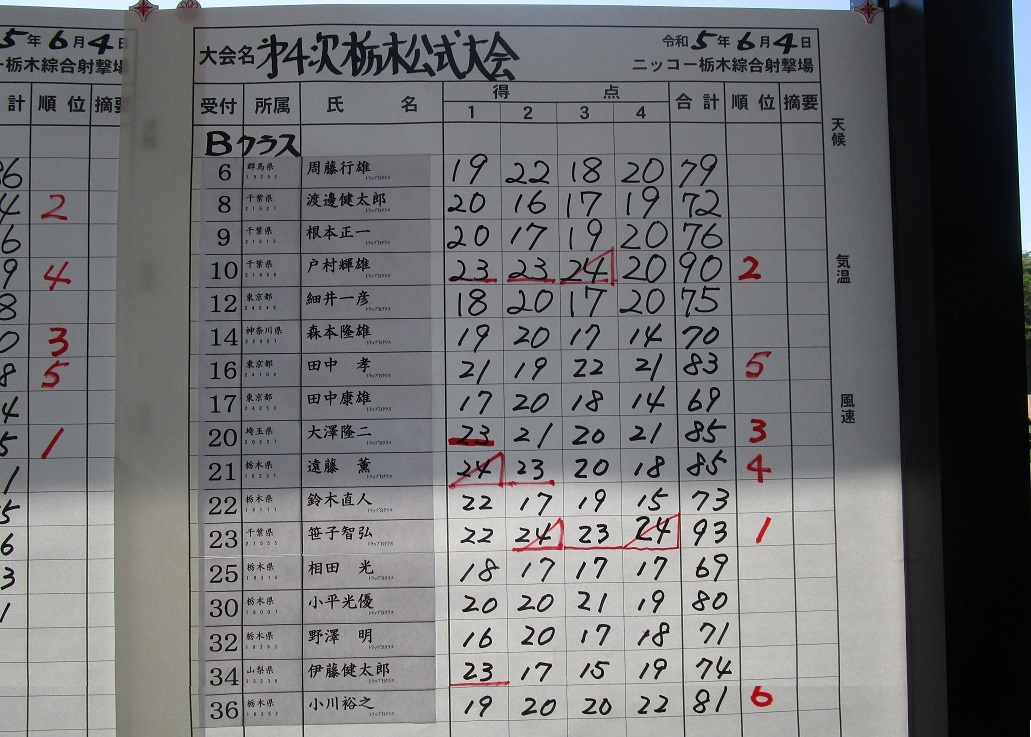 5年6月4日
ー栃木綜合射撃場
計 順位 摘要
86
4 2
6
9 4
8
0 3
8 5
4
5 1
1
5
6
3
1
大会名 第4次栃木公式大会 令和5年6月4日
ニッコー栃木綜合射撃場
受付 所属 氏名 得点 合計 順位 摘要
1 2 3 4
Bクラス
6 群馬県 周藤行雄 19 22 18 20 79
8 千葉県 渡邊健太郎 20 16 17 19 72
9 千葉県 根本正一 20 17 19 20 76
10 千葉県 戸村輝雄 23 23 24 20 90 2
12 東京都 細井一彦 18 20 17 20 75
14 神奈川県 森本隆雄 19 20 17 14 70
16 東京都 田中 孝 21 19 22 21 83 5
17 東京都 田中康雄 17 20 18 14 69
20 埼玉県 大澤隆二 23 21 20 21 85 3
21 栃木県 遠藤 薫 24 23 20 18 85 4
22 栃木県 鈴木直人 22 17 19 15 73
23 千葉県 笹子智弘 22 24 23 24 93 1
25 栃木県 相田 光 18 17 17 17 69
30 栃木県 小平光優 20 20 21 19 80
32 栃木県 野澤 明 16 20 17 18 71
34 山梨県 伊藤健太郎 23 17 15 19 74
36 栃木県 小川裕之 19 20 20 22 81 6
天候
気温
風速